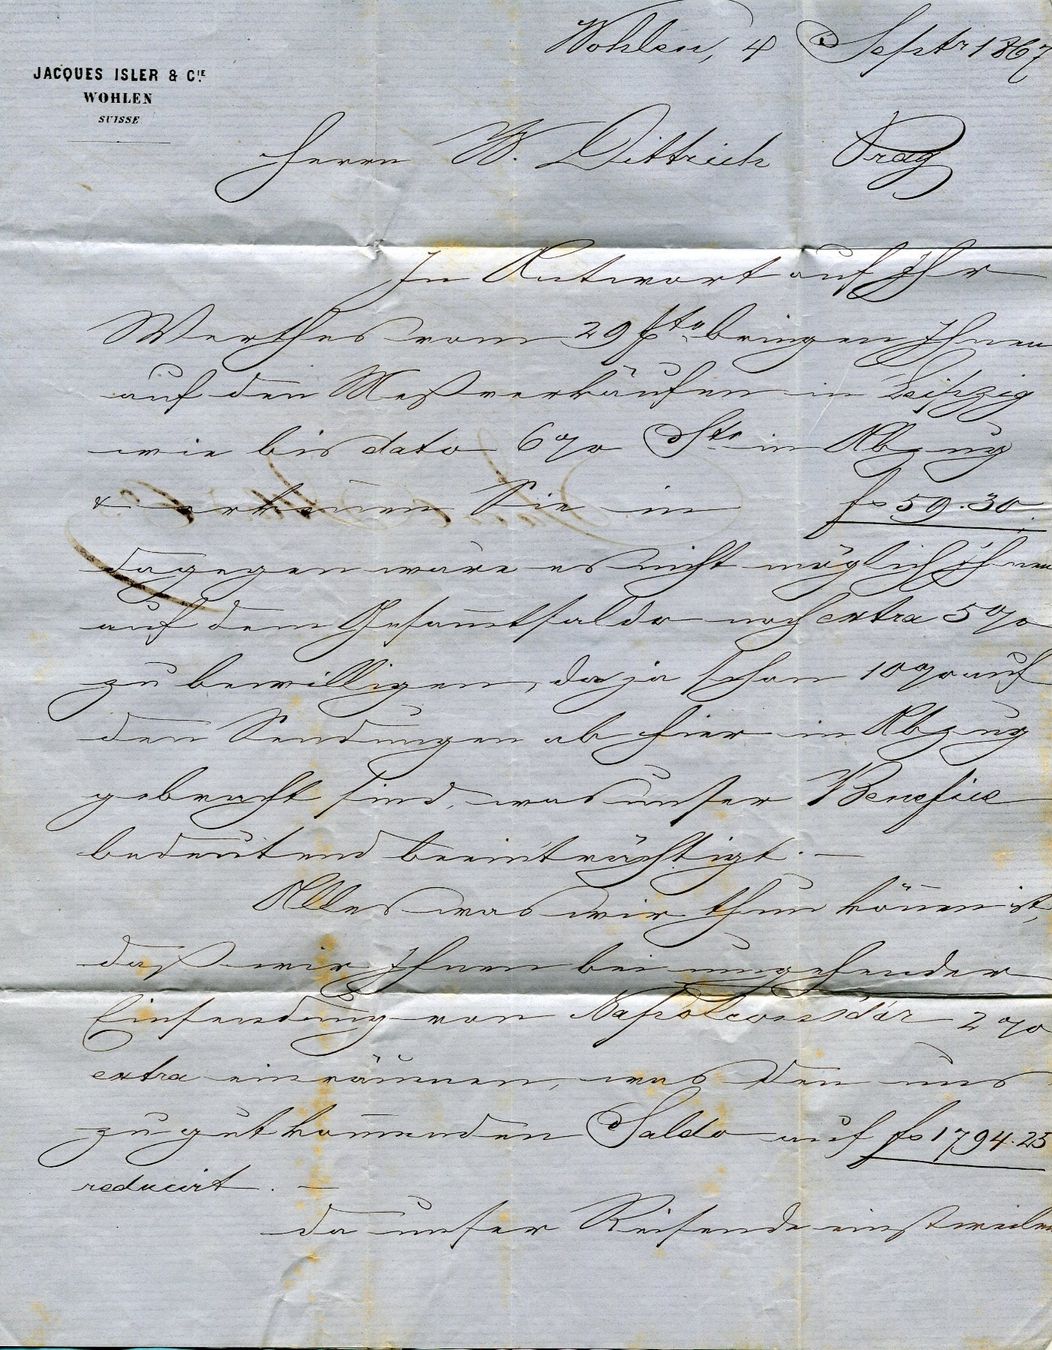 Wohlen, 4 Septr 1867
JACQUES ISLER & CIE.
WOHLEN
SUISSE
Herrn W. Dittrich Prag
In Antwort auf Ihr
Werthes vom 29 pto bringen Ihnen
auf den Meßverkäufen in Leipzig
wie bis dato 6% Sto in Abzug
& erkennen Sie in fs 59.30.
dagegen wäre es nicht möglich Ihnen
auf dem Gesam̅tsaldo noch extra 5%
zu bewilligen, da ja schon 10% auf
den Sendungen ab hier in Abzug
gebracht sind, was unser Benefice
bedeutend beeinträchtigt. —
Alles was wir thun kön̅en ist,
daß wir Ihnen bei umgehender
Einsendung von Napoleonsd'or 2%
extra einräumen, was den uns
zu gut kom̅enden Saldo auf fs 1794.25
reducirt. —
Da unser Reisende einstweilen